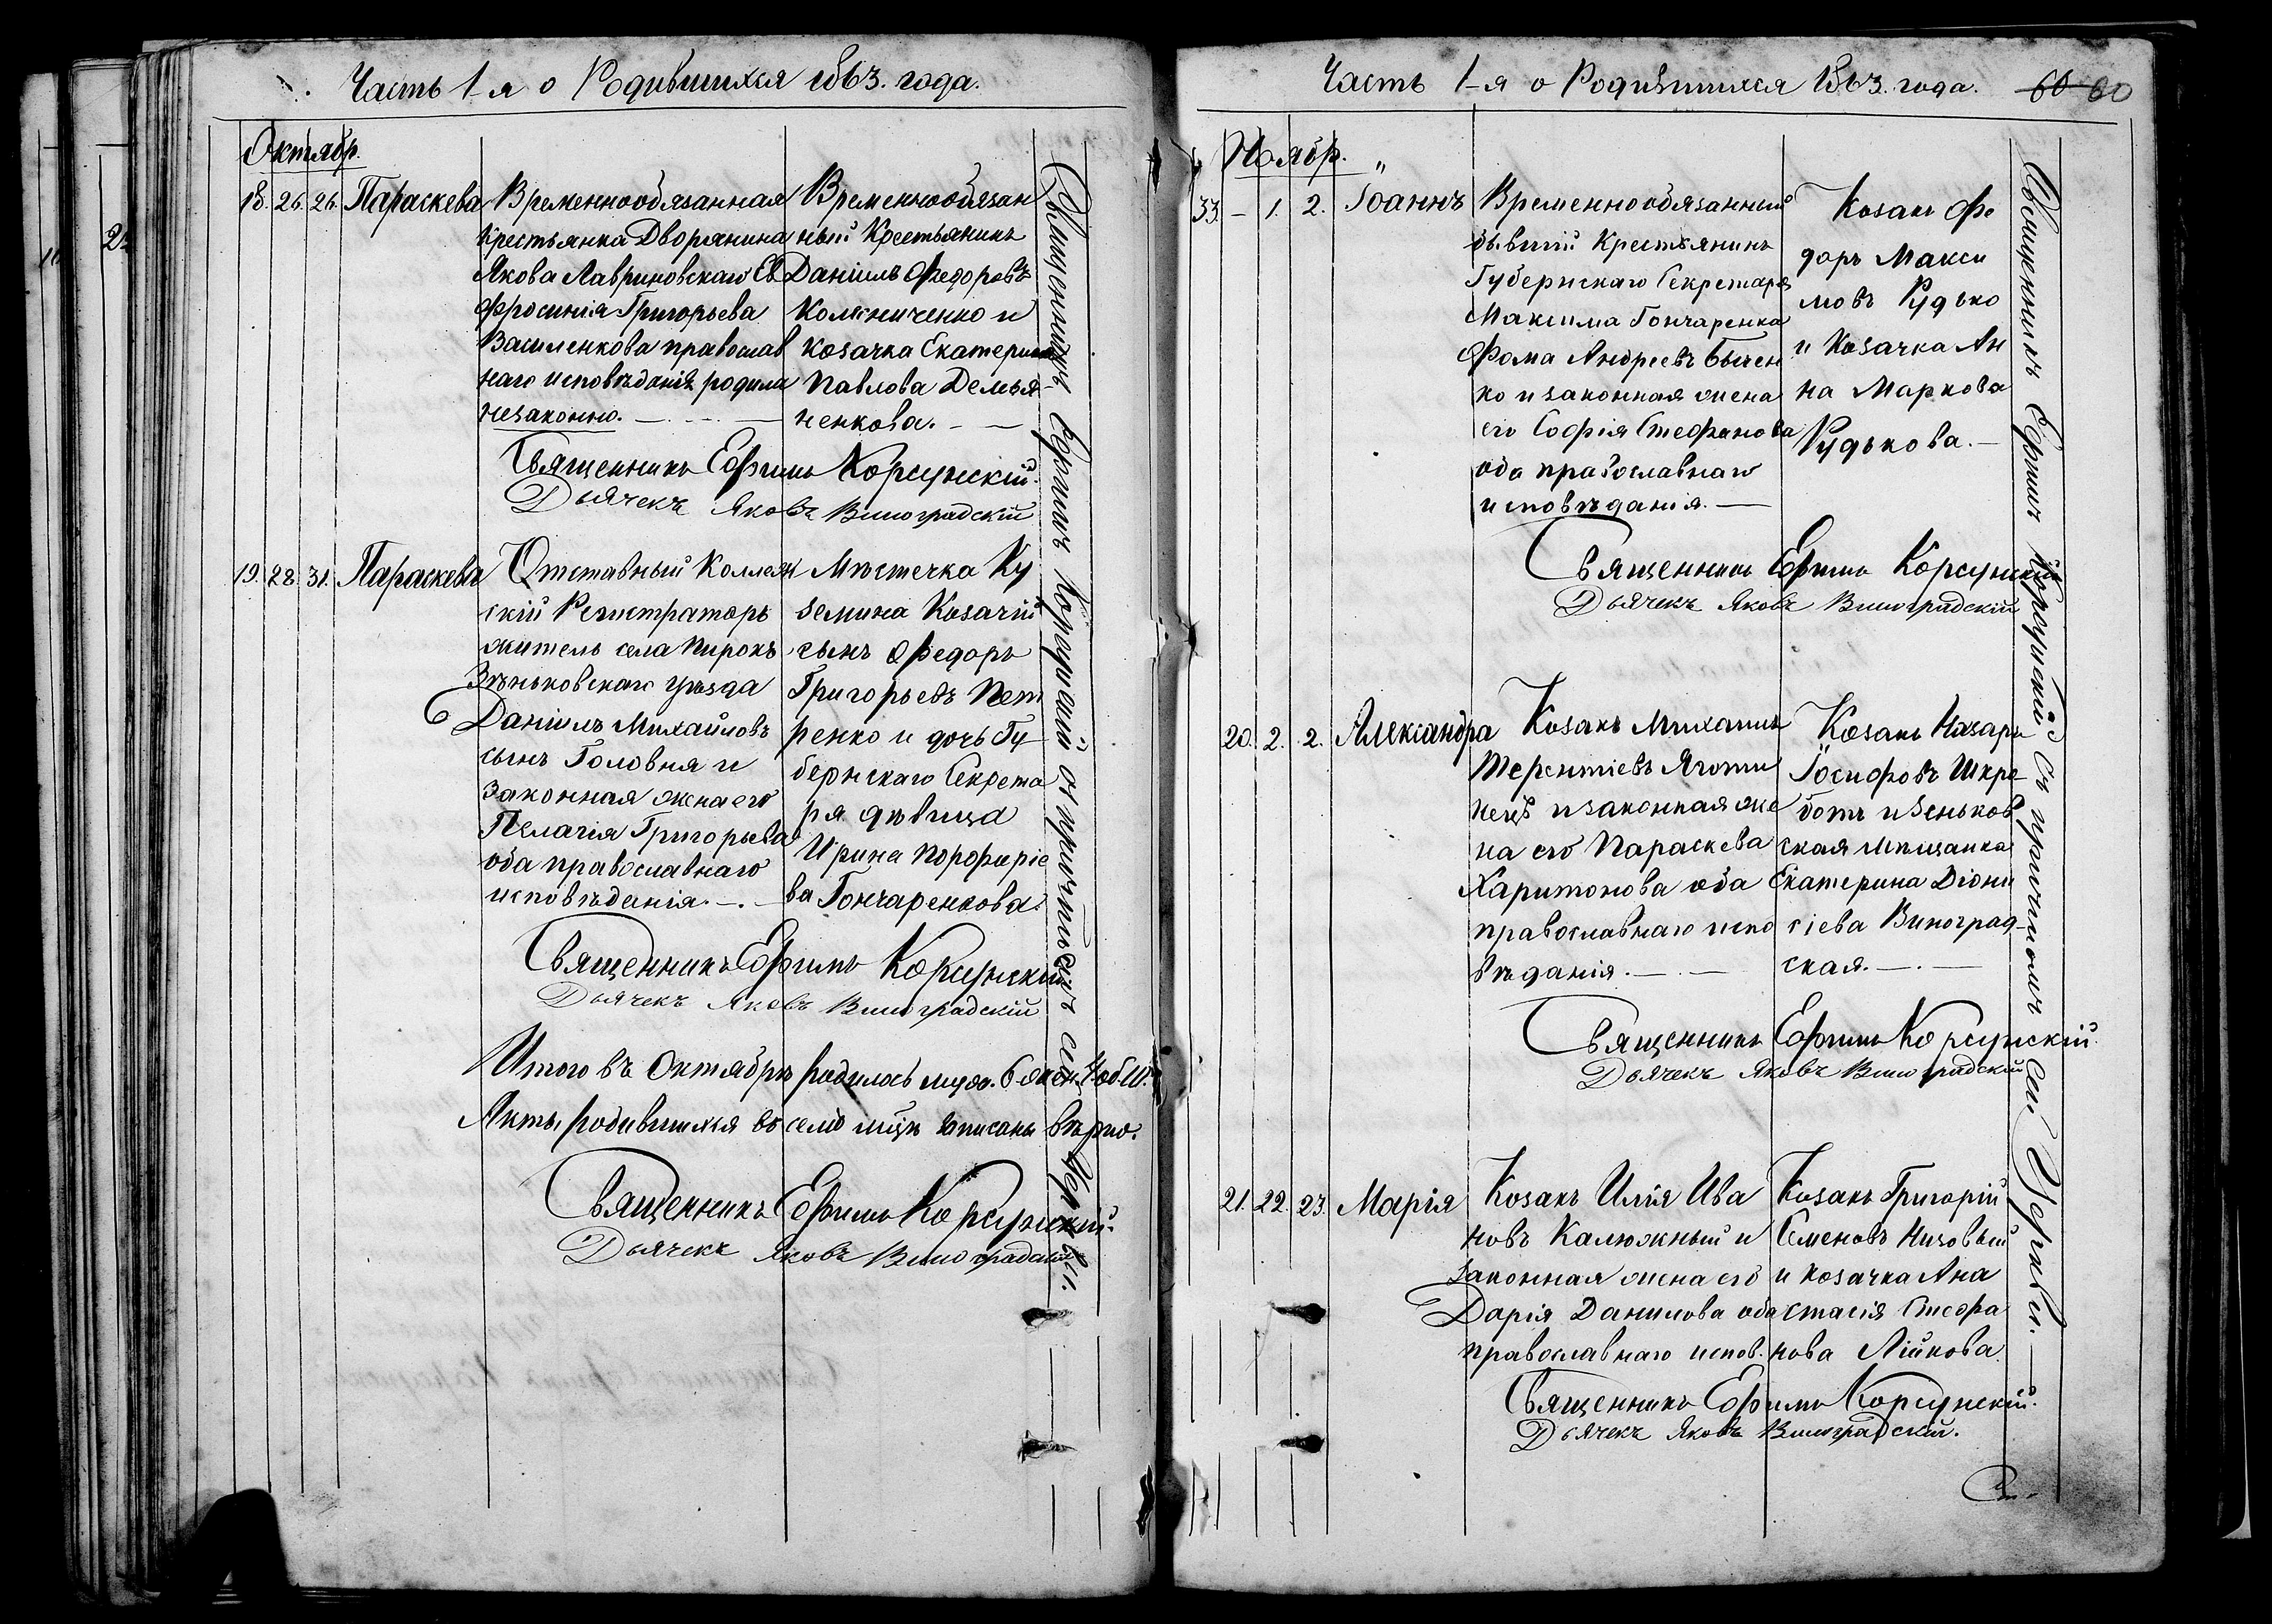 Часть 1-я о Родившихся 1863. года.
Октябр.
18. 26. 26. Параскева
Временнообязанная
крестьянка Дворянина
Якова Лавриновскаго Ев
фросинія Григорьева
Василенкова православ
наго исповѣданія родила
незаконно.
Временнообязан
ный Крестьянинъ
Даніилъ Федоровъ
Колѣниченко и
козачка Екатерина
Павлова Демья-
ненкова.
Священникъ Ефимъ Корсунскій.
Дьячекъ Яковъ Виноградскій
19. 28. 31. Параскева
Отставный Коллеж
скій Регистраторъ
житель села Пирокъ
Зѣньковскаго уѣзда
Даніилъ Михайловъ
сынъ Головня и
законная жена его
Пелагія Григорьева
оба православнаго
исповѣданія.
Мѣстечка Ку
земина Козачій
сынъ Федоръ
Григорьевъ Пет
ренко и дочь Гу-
бернскаго Секрета
ря дѣвица
Ирина Порфиріе
ва Гончаренкова.
Священникъ Ефимъ Корсунскій
Дьячекъ Яковъ Виноградскій
Итого въ Октябрѣ родилось муж. 6 жен. 4 об.
Акты родившихся въ семъ мцѣ записаны вѣрно.
Священникъ Ефимъ Корсунскій.
Дьячекъ Яковъ Виноградскій
Священникъ Ефимъ Корсунскій съ причтомъ сей Церкви.
Часть 1-я о Родившихся 1863. года. 60 60
Ноябр.
33 - 1. 2. Іоаннъ
Временнообязанный
бывшій Крестьянинъ
Губернскаго Секретаря
Максима Гончаренка
Фома Андреевъ Бычен
ко и законная жена
его Софія Стефанова
оба православнаго
исповѣданія.
Козакъ Фе
доръ Макси
мовъ Рудько
и Козачка Ан
на Маркова
Рудькова.
Священникъ Ефимъ Корсунскій
Дьячекъ Яковъ Виноградскій
20. 2. 2. Александра
Козакъ Михаилъ
Терентіевъ Яготи
нецъ и законная же
на его Параскева
Харитонова оба
православнаго испо
вѣданія.
Козакъ Назаръ
Іосифовъ Шкре-
ботъ и Зеньков
ская мѣщанка
Екатерина Діони
сіева Виноград-
ская.
Священникъ Ефимъ Корсунскій.
Дьячекъ Яковъ Виноградскій
21. 22. 23. Марія
Козакъ Илія Ива
новъ Калюжный и
законная жена его
Дарія Данилова оба
православнаго испов.
Козакъ Григорій
Семеновъ Низовый
и козачка Ана
стасія Стефа
нова Лійкова
Священникъ Ефимъ Корсунскій.
Дьячекъ Яковъ Виноградскій.
Священникъ Ефимъ Корсунскій съ причтомъ сей Церкви.